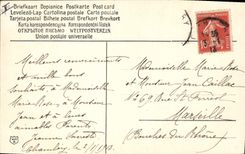 Briefkaart Dopisnice Postkarte Post card
Levelező-Lap Cartolina postale Carte postale
Tarjeta postal Bilhete postal Brefkort Brevkort
Karta korespondencyjna Korespondenční Lístek
ОТКРЫТОЕ ПИСЬМО WELTPOSTVEREIN
Union postale universelle
Meilleurs
et bons
souhaits à Mademoiselle
Marie-Rose et
Monsieur Jean et à leurs
Chambéry le 2/1/1913
Mademoiselle Marie-Rose
et Monsieur Jean Caillac
N° 69 Rue St
Marseille
Bouches du Rhône